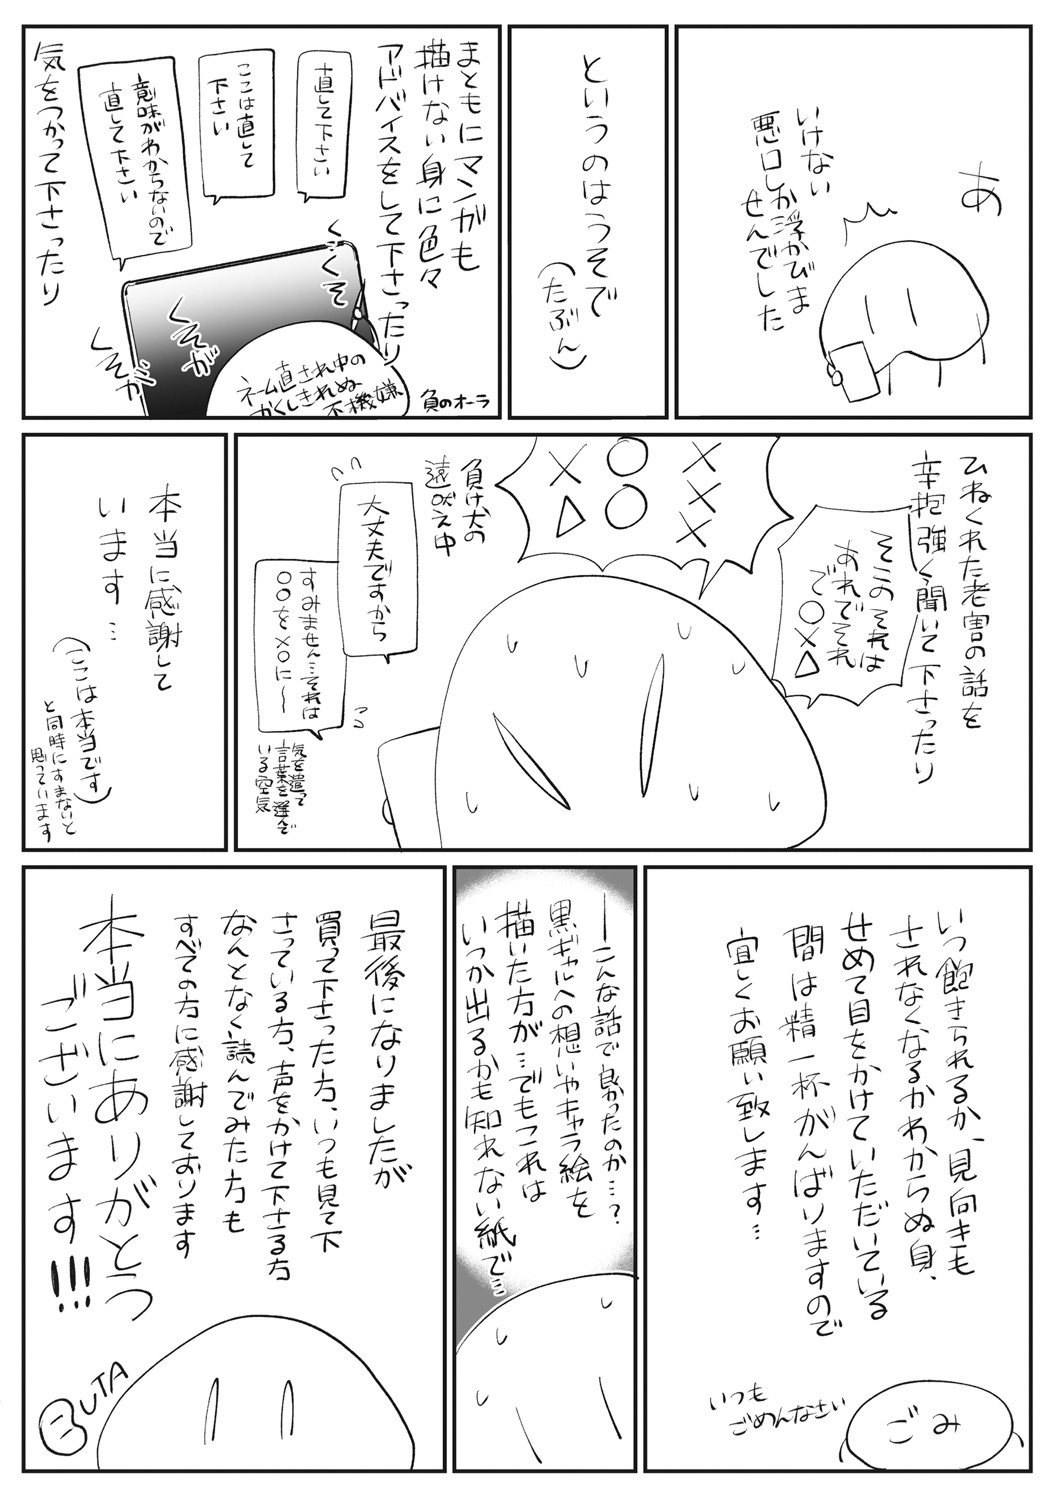 あ
いけない
悪口しか浮かびま
せんでした
というのはうそで
(たぶん)
まともにマンガも
描けない身に色々
アドバイスをして下さったり
直して下さい
ここは直して
下さい
意味がわからないので
直して下さい
気をつかって下さったり
くそ
くそが
くそが
ネーム直され中の
かくしきれぬ
不機嫌
負のオーラ
ひねくれた老害の話を
辛抱強く聞いて下さったり
そこのそれは
あれでそれ
で○×△
×××
○○
×△
負け犬の
遠吠え中
大丈夫ですから
すみません…それは
○○を×○に〜
気を遣って
言葉を選んで
いる空気
本当に感謝して
います…
(ここは本当です)
と同時にすまないと
思っています
いつ飽きられるか、見向きも
されなくなるかわからぬ身、
せめて目をかけていただいている
間は精一杯がんばりますので
宜しくお願い致します…
ごみ
いつも
ごめんなさい
―こんな話で良かったのか…?
黒ギャルへの想いやキャラ絵を
描いた方が…でもこれは
いつか出るかも知れない紙で…
最後になりましたが
買って下さった方、いつも見て下
さっている方、声をかけて下さる方
なんとなく読んでみた方も
すべての方に感謝しております
本当にありがとう
ございます!!!
BUTA